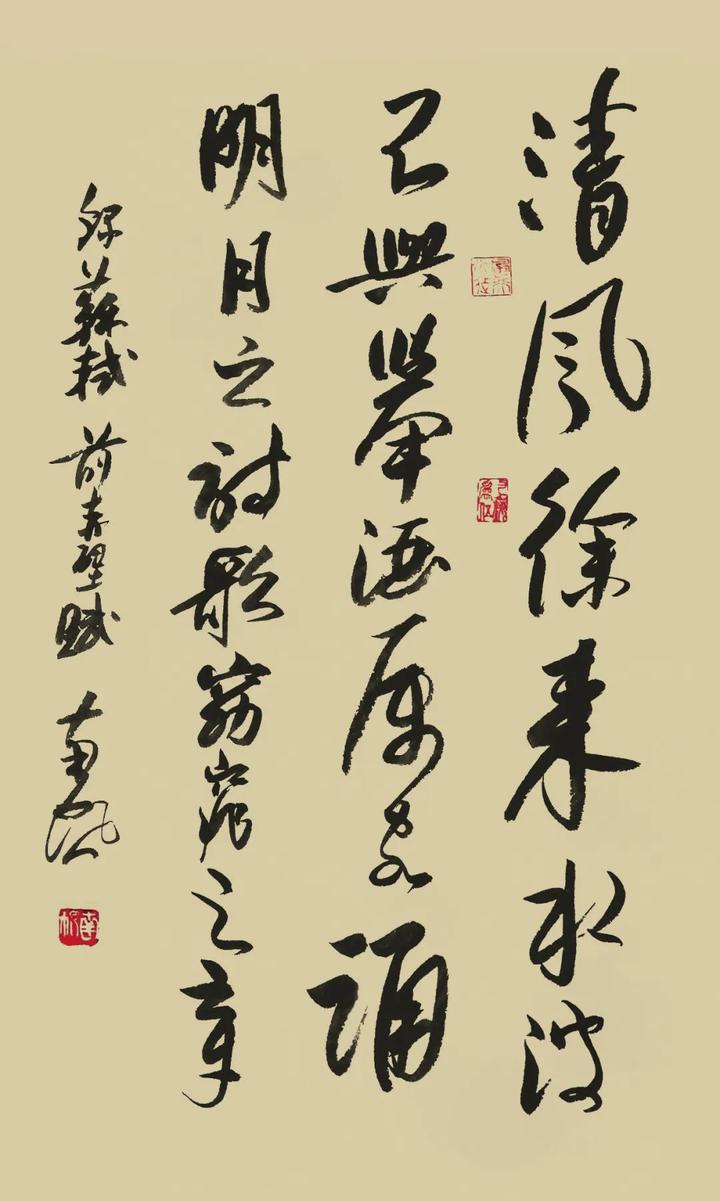 清風徐来水波
不興舉酒属客誦
明月之詩歌窈窕之章
録蘇軾前赤壁賦